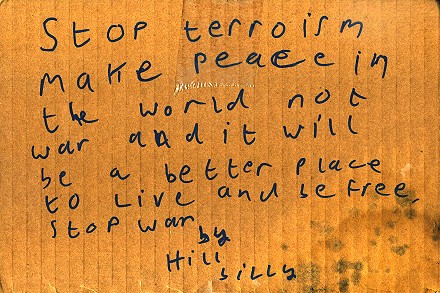 Stop terroism
make peace in
the world not
war and it will
be a better place
to Live and be free,
Stop war
by
Hill
billy